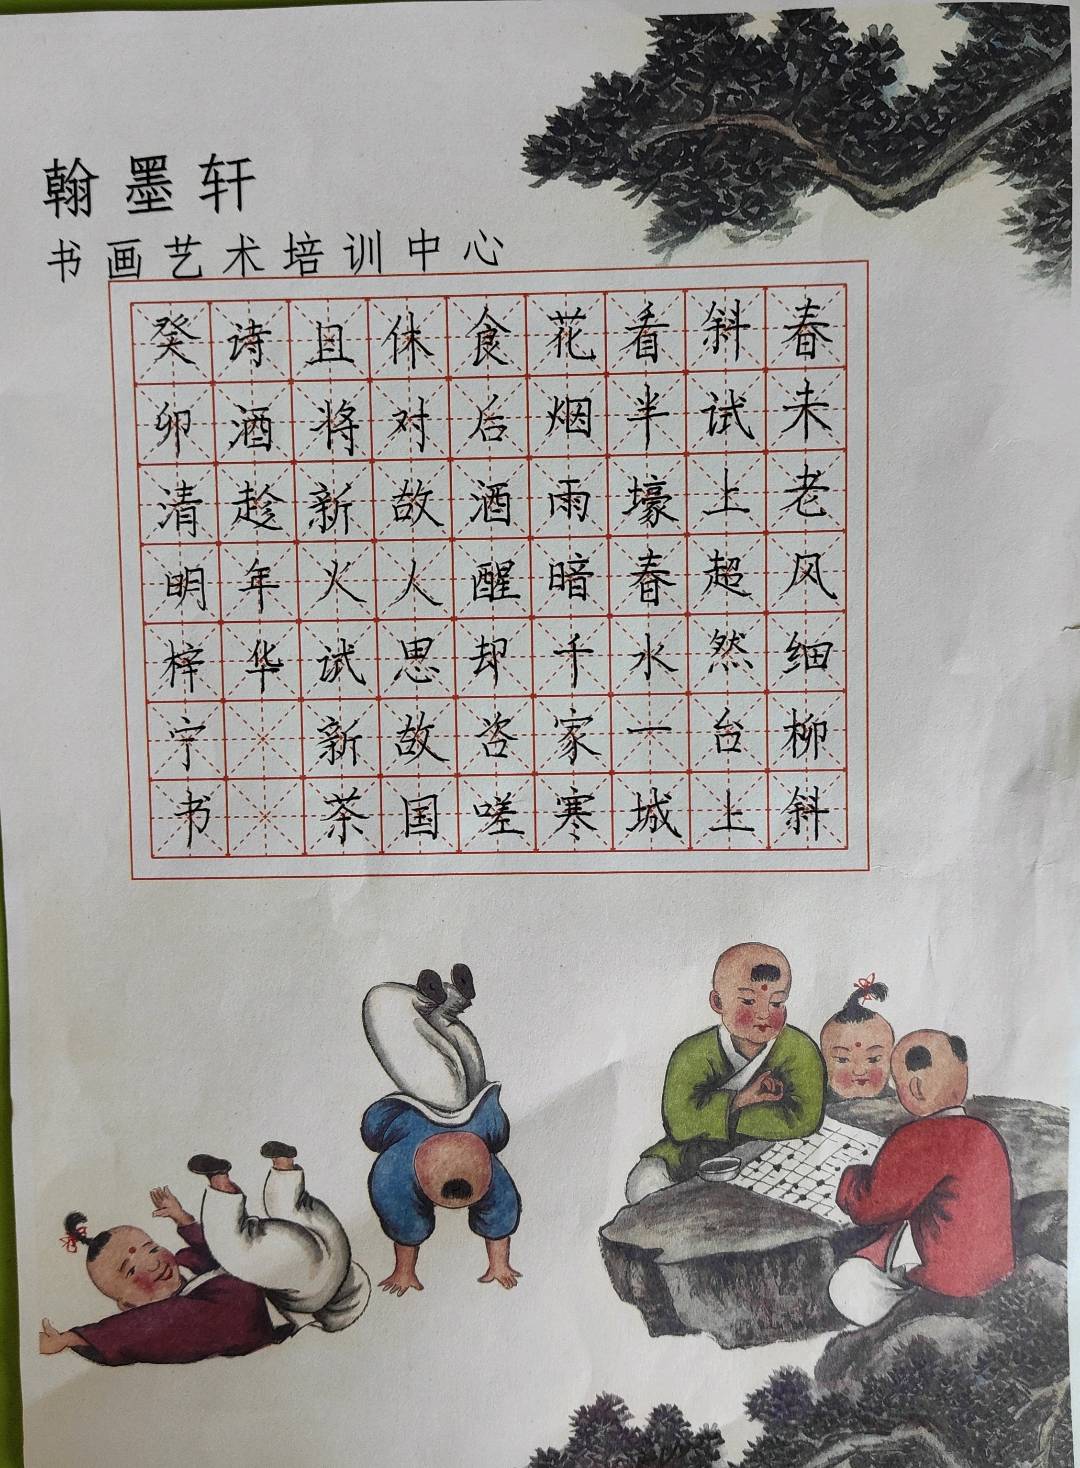 翰墨轩
书画艺术培训中心
春未老风细柳斜
斜试上超然台上
看半壕春水一城
花烟雨暗千家寒
食后酒醒却咨嗟
休对故人思故国
且将新火试新茶
诗酒趁年华
癸卯清明梓宁书